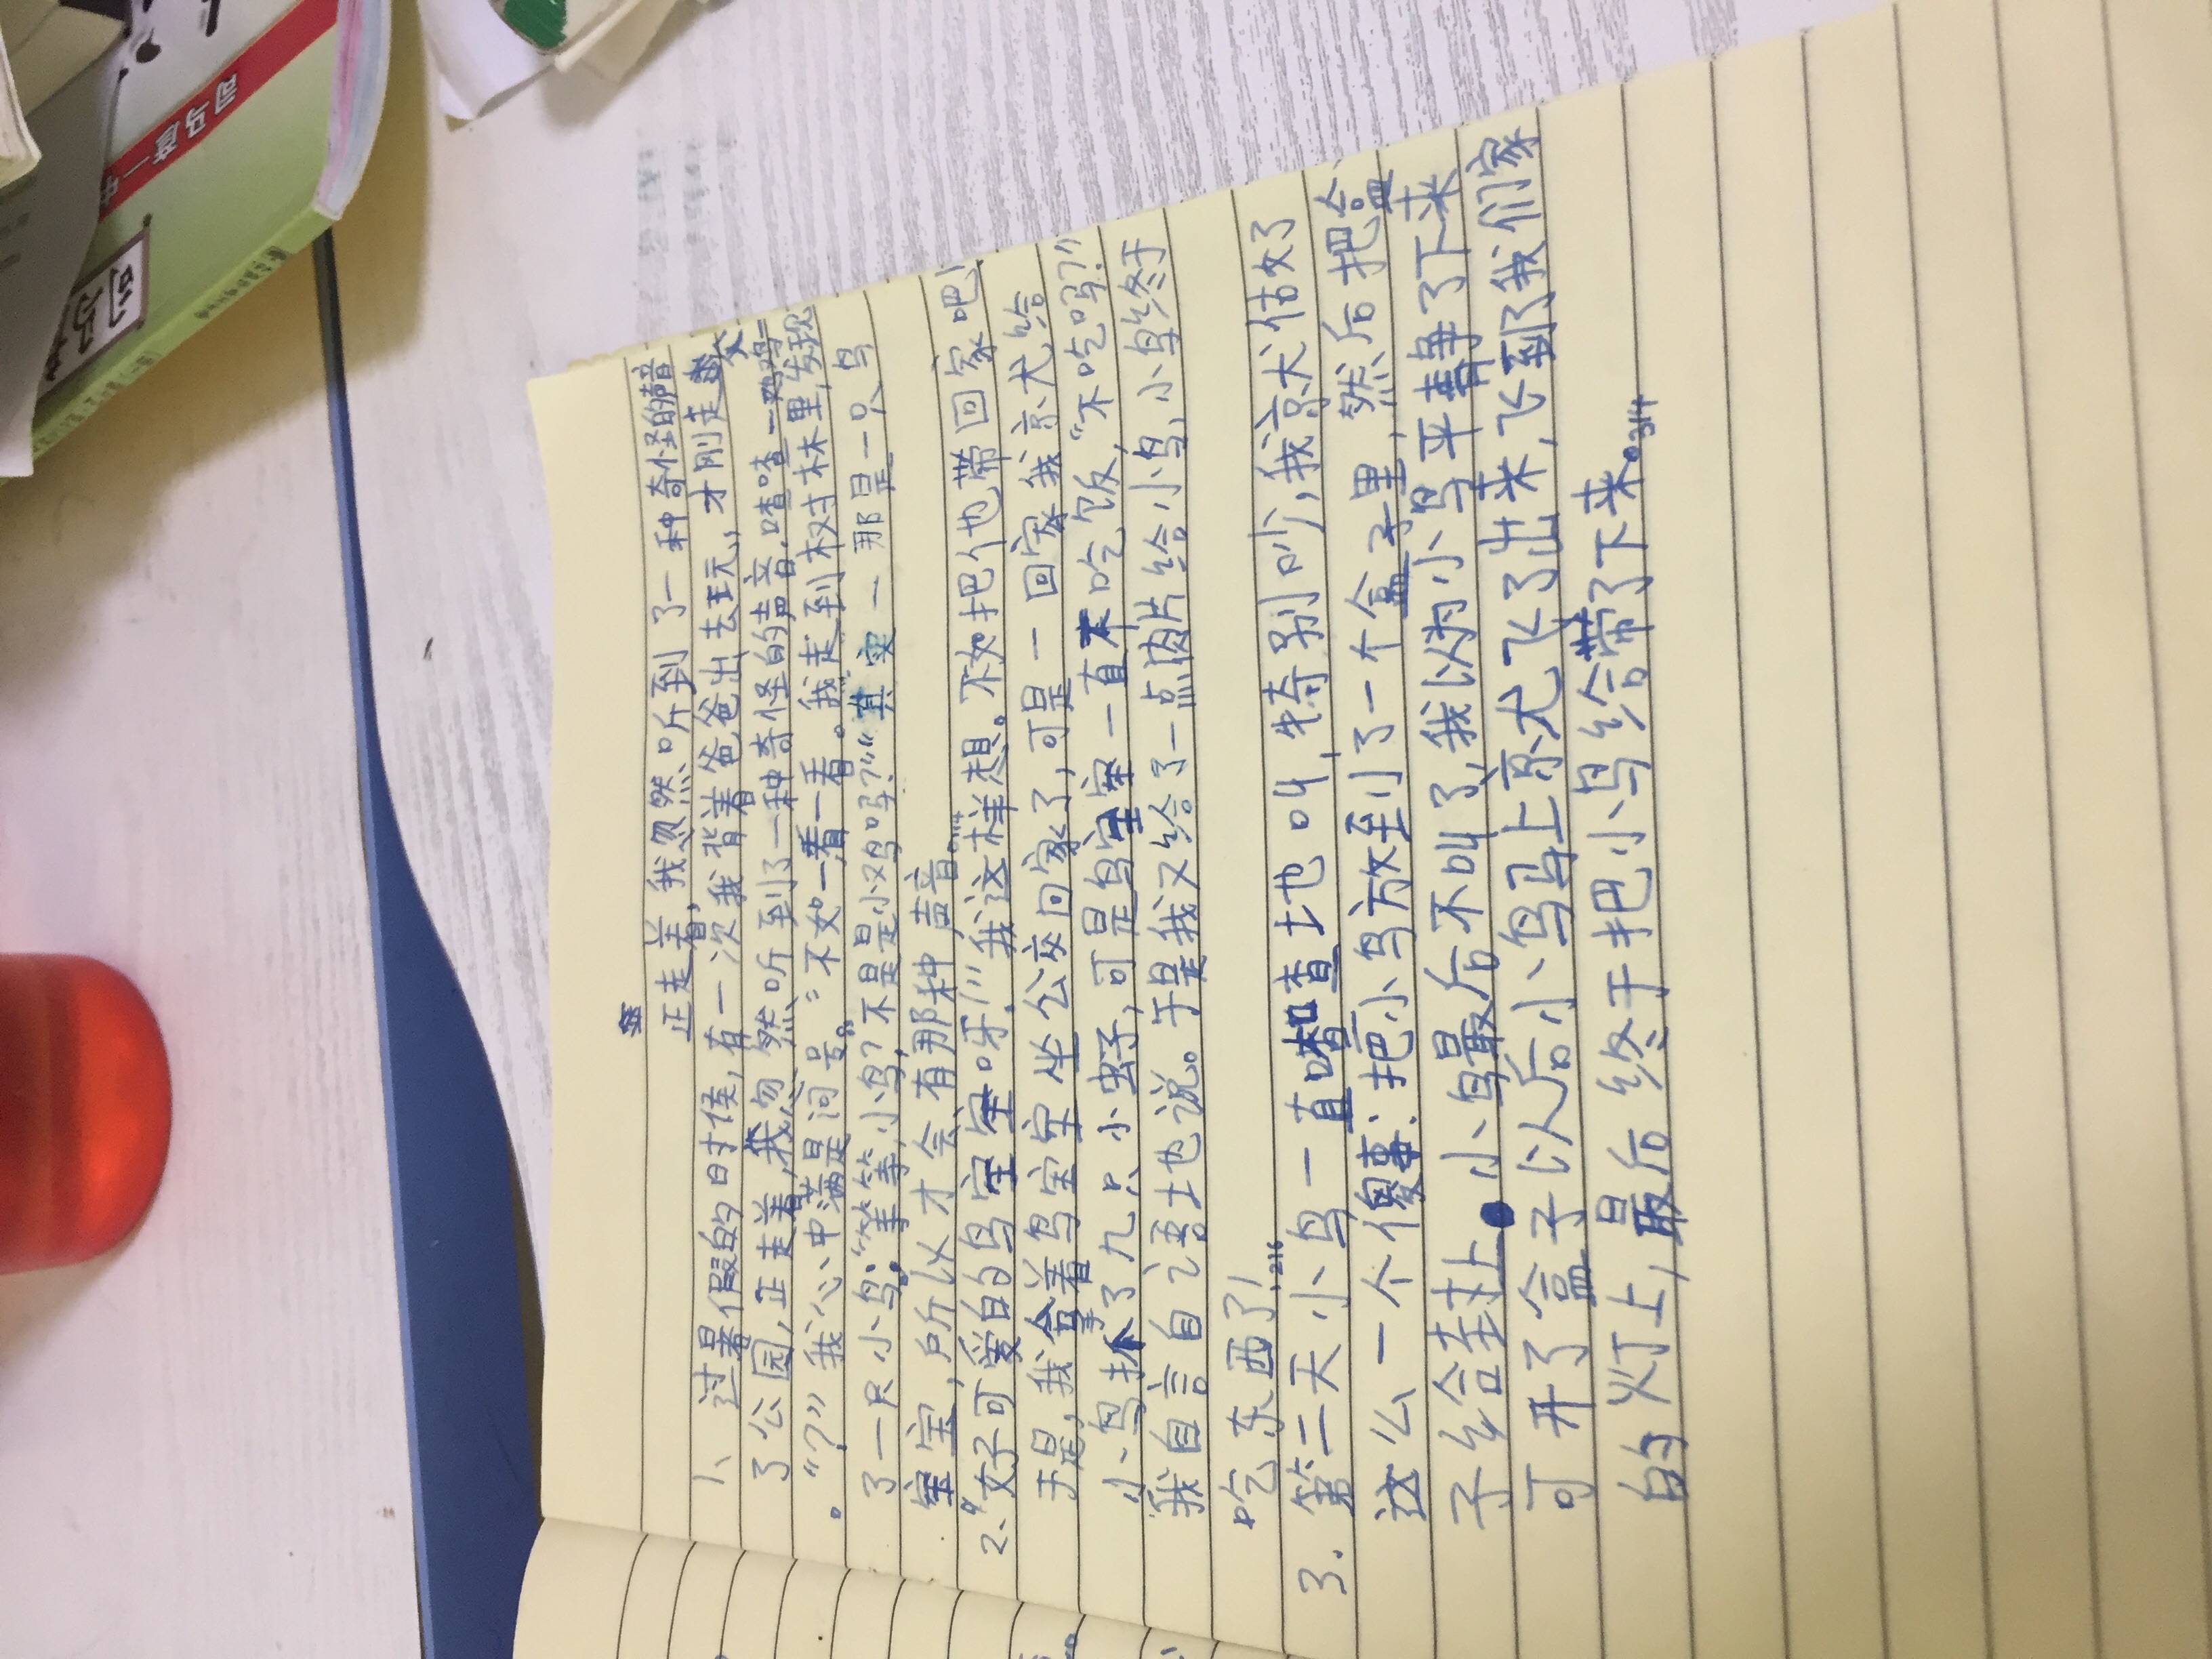 正走着，我忽然听到了一种奇怪的声音
1、过暑假的时候，有一次我背着爸爸出去玩，才刚走
了公园，正走着，我忽然听到了一种奇怪的声音，喳喳一
“？”我心中满是问号。“不如看一看。”我走到树林里，发现
了一只小鸟：“等等，小鸟？不是小鸡吗？”“其实一那是一只鸟
宝宝，所以才会有那种声音。”114
2、“好可爱的鸟宝宝呀！”我这样想。不如把他带回家吧！
于是，我拿着鸟宝宝坐公交回家了，可是一回家我就给
小鸟抓了九只小虫子，可是鸟宝宝一直不吃饭，“不吃吗？”
我自言自语地说。于是我又给了一点肉片给小鸟，小鸟终于
吃东西了！216
3．第二天小鸟一直喳喳地叫，特别吵，我就做了
这么一个傻事：把小鸟放到了一个盒子里，然后把盒
子给封上。小鸟最后不叫了，我以为小鸟平静了下来
可开了盒子以后小鸟马上就飞了出来，飞到了我们家
的灯上，最后终于把小鸟给带了下来。314